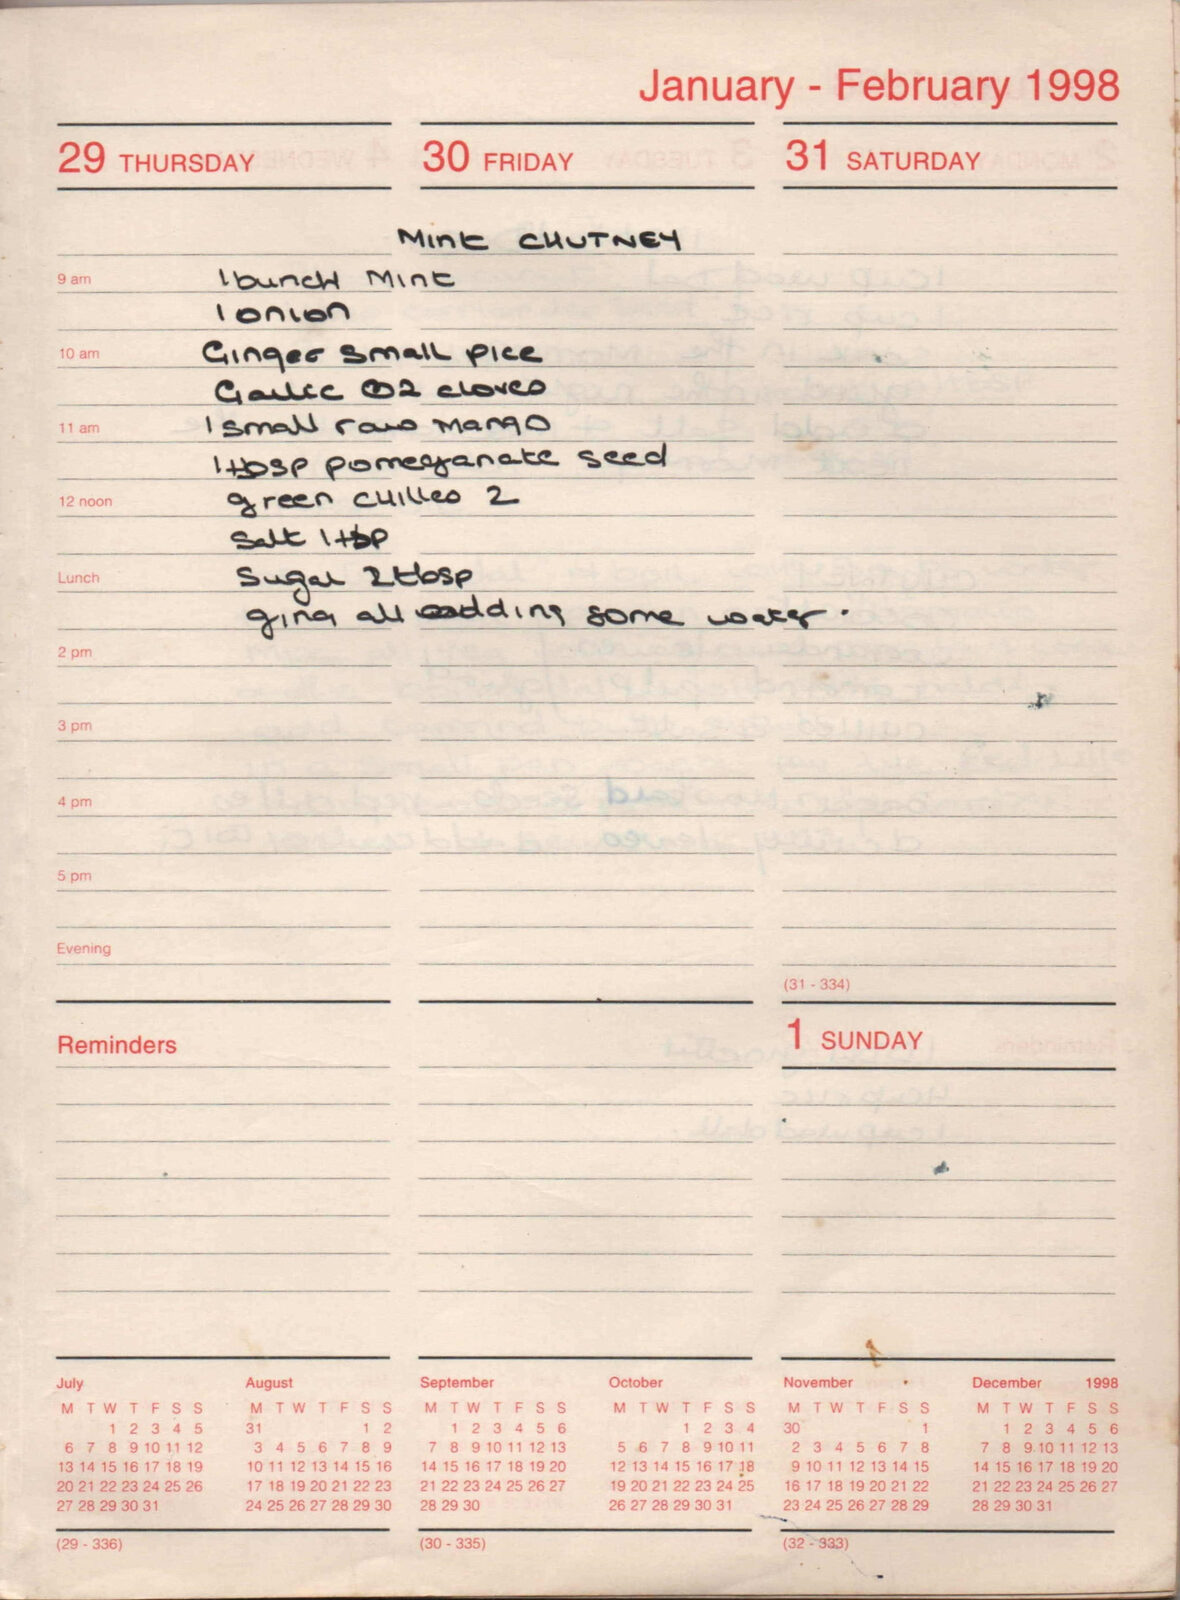 January - February 1998
29 THURSDAY
30 FRIDAY
31 SATURDAY
Mint CHUTNEY
9 am
1 bunch Mint
1 onion
10 am
Ginger small pice
Garlic 2 cloves
11 am
1 small raw Mango
1 tbsp pomegranate seed
12 noon
green chilles 2
Salt 1 tsp
Lunch
Sugar 2 tbsp
gind all adding some water.
2 pm
3 pm
4 pm
5 pm
Evening
(31 - 334)
Reminders
1 SUNDAY
July August September October November December 1998
M T W T F S S M T W T F S S M T W T F S S M T W T F S S M T W T F S S M T W T F S S
1 2 3 4 5 31 1 2 1 2 3 4 5 6 1 2 3 4 30 1 1 2 3 4 5 6
6 7 8 9 10 11 12 3 4 5 6 7 8 9 7 8 9 10 11 12 13 5 6 7 8 9 10 11 2 3 4 5 6 7 8 7 8 9 10 11 12 13
13 14 15 16 17 18 19 10 11 12 13 14 15 16 14 15 16 17 18 19 20 12 13 14 15 16 17 18 9 10 11 12 13 14 15 14 15 16 17 18 19 20
20 21 22 23 24 25 26 17 18 19 20 21 22 23 21 22 23 24 25 26 27 19 20 21 22 23 24 25 16 17 18 19 20 21 22 21 22 23 24 25 26 27
27 28 29 30 31 24 25 26 27 28 29 30 28 29 30 26 27 28 29 30 31 23 24 25 26 27 28 29 28 29 30 31
(29 - 336)
(30 - 335)
(32 - 333)